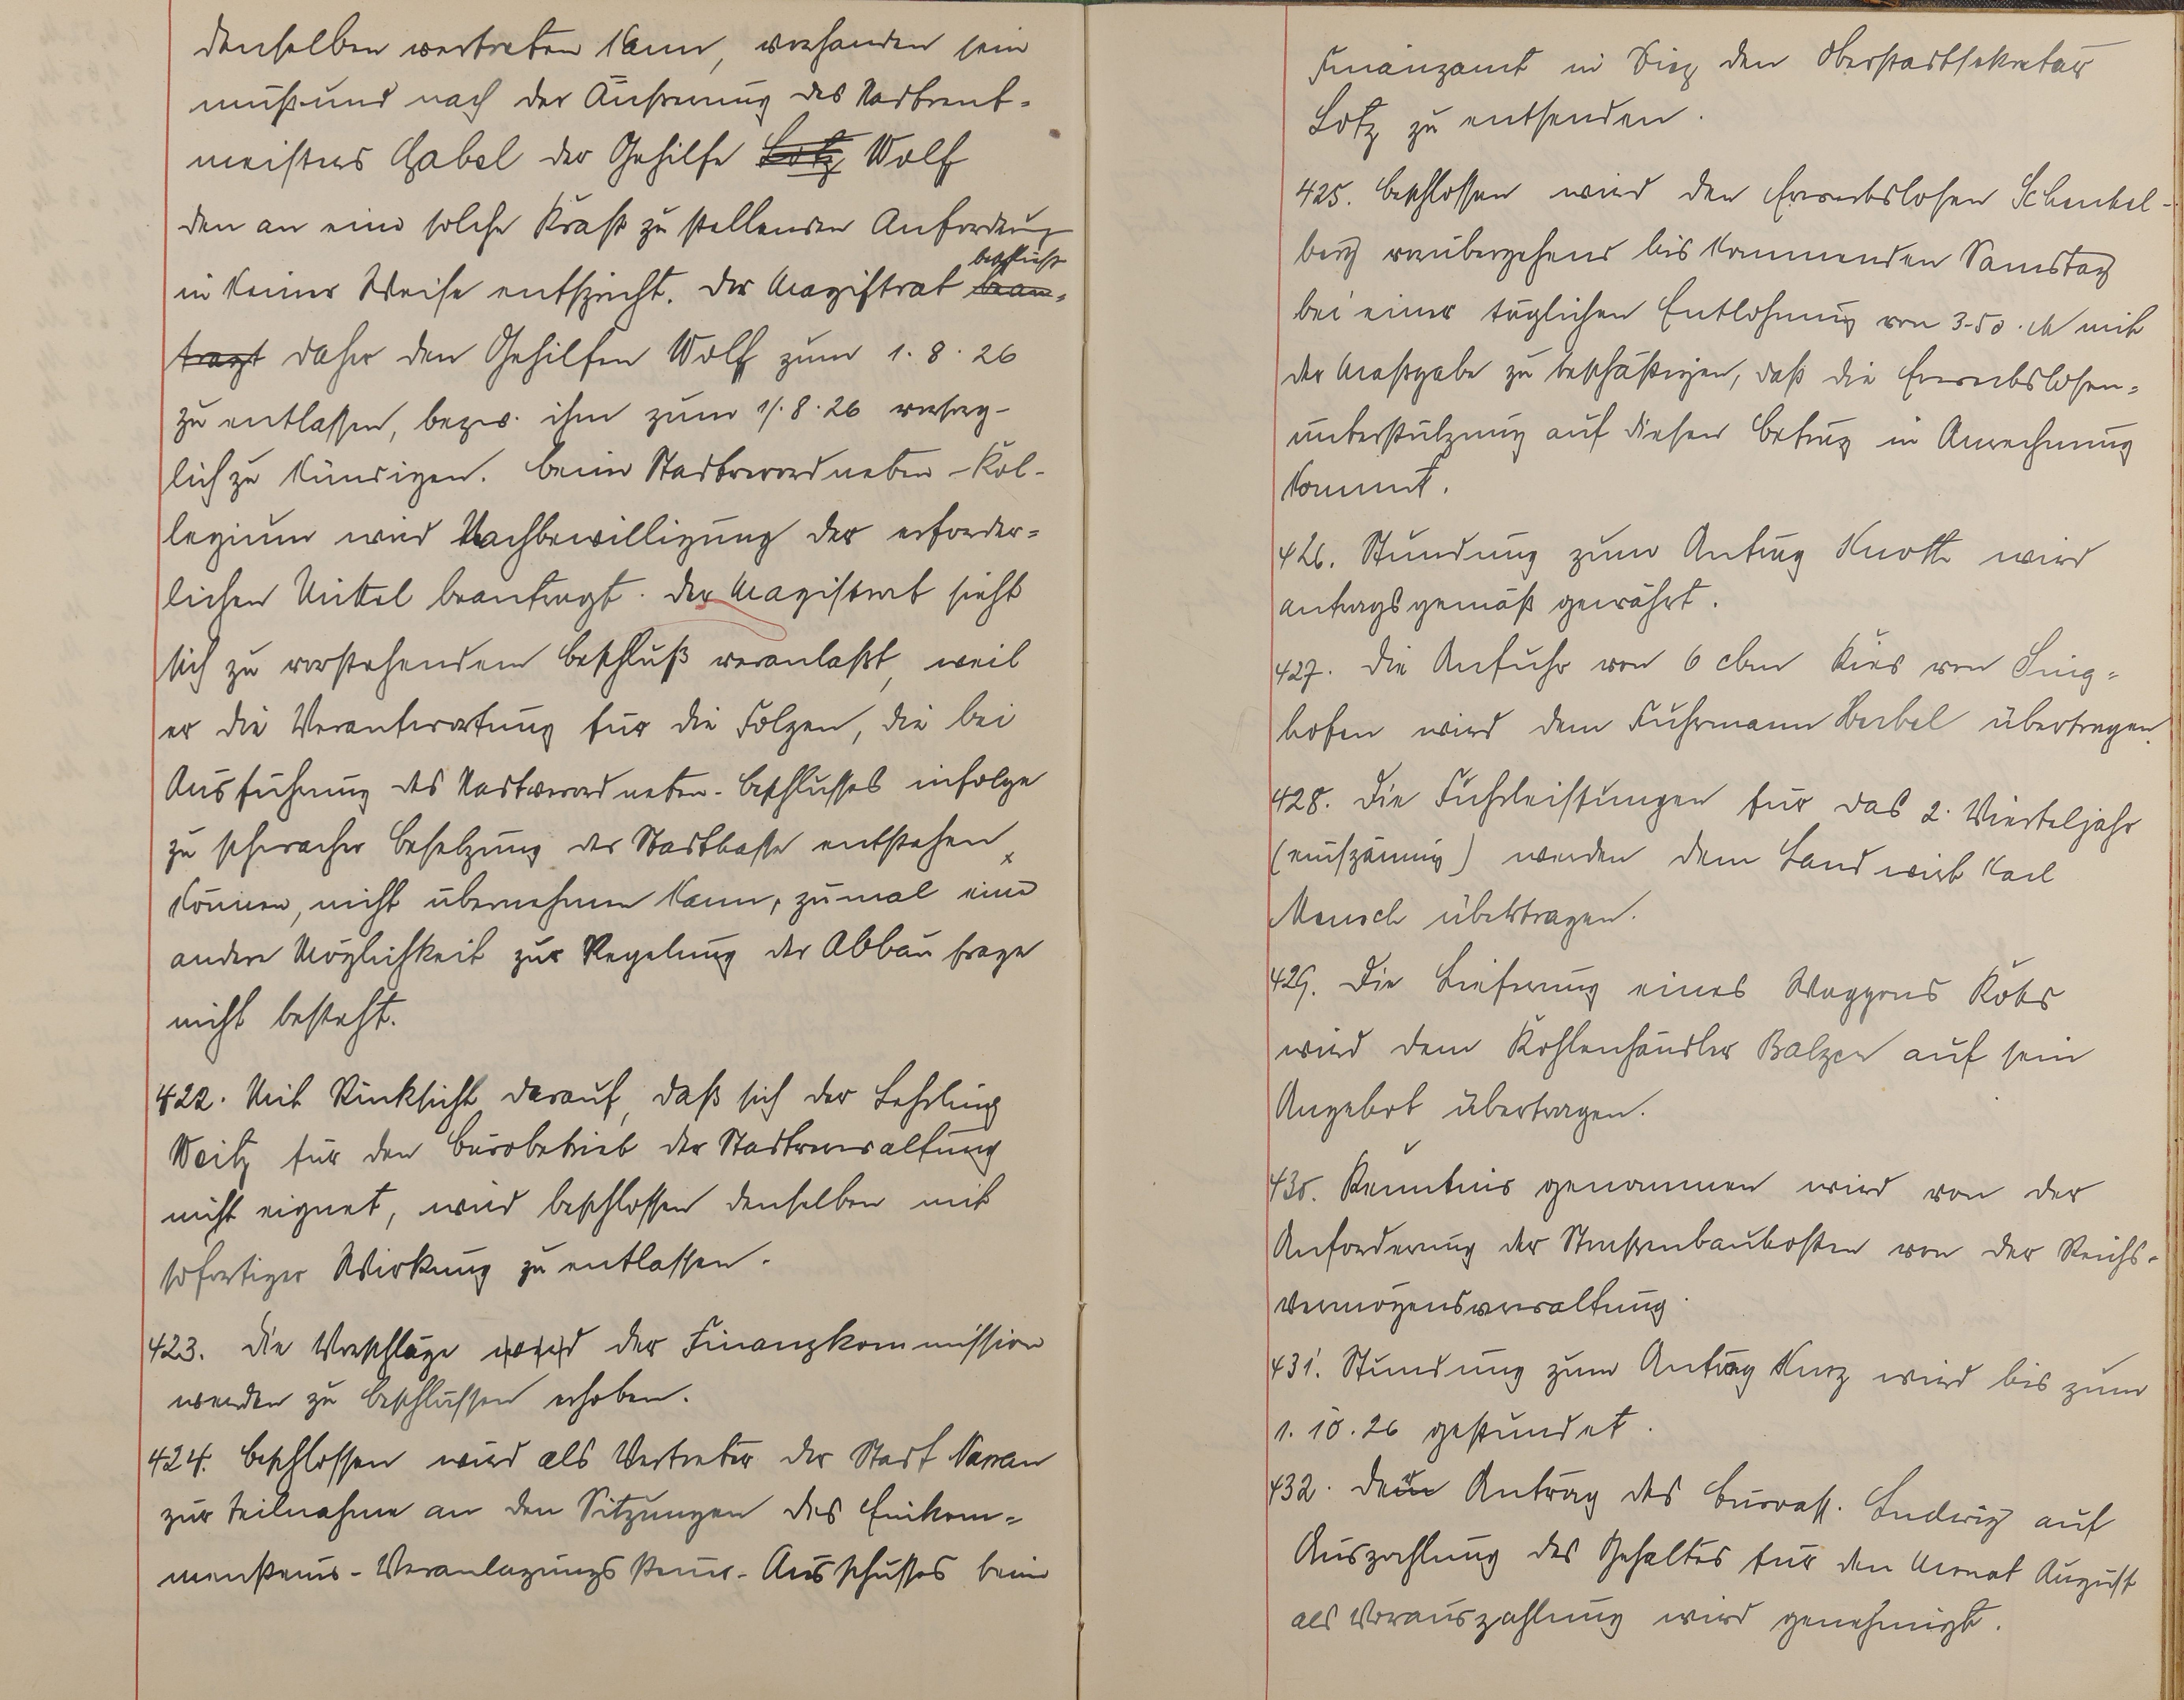 denselben vertreten kann, vorhanden sein
muß und nach der Äußerung des Stadtrent-
meisters Gabel der Gehilfe Lotz Wolf
den an eine solche Kraft zu stellenden Anforderung
in keiner Weise entspricht. Der Magistrat bean-
beschließt
tragt daher den Gehilfen Wolf zum 1. 8. 26
zu entlassen, bezw. ihm zum 1/. 8. 26 vorsorg-
lich zu kündigen. Beim Stadtverordneten-Kol-
legium wird Nachbewilligung der erforder-
lichen Mittel beantragt. Der Magistrat sieht
sich zu vorstehendem Beschluß veranlaßt, weil
er die Verantwortung für die Folgen, die bei
Ausführung des Stadtverordneten-Beschlusses infolge
zu schwacher Besetzung der Stadtkasse entstehen
können, nicht übernehmen kann, zumal eine
andere Möglichkeit zur Regelung der Abbaufrage
nicht besteht.
422. Mit Rücksicht darauf, daß sich der Lehrling
Weitz für den Bürobetrieb der Stadtverwaltung
nicht eignet, wird beschlossen denselben mit
sofortiger Wirkung zu entlassen.
423. Die Vorschläge wird der Finanzkommission
werden zu Beschlüssen erhoben.
424. Beschlossen wird als Vertreter der Stadt Nassau
zur Teilnahme an den Sitzungen des Einkom-
mensteuer-Veranlagungssteuer-Ausschusses beim
Finanzamt in Diez den Oberstadtsekretär
Lotz zu entsenden.
425. Beschlossen wird den Erwerbslosen Schenkel-
berg vorübergehend bis kommenden Samstag
bei einer täglichen Entlohnung von 3.50 M mit
der Maßgabe zu beschäftigen, daß die Erwerbslosen-
unterstützung auf diesen Betrag in Anrechnung
kommt.
426. Stundung zum Antrag Knoth wird
antragsgemäß gewährt.
427. Die Anfuhr von 6 cbm Kies von Sing-
hofen wird dem Fuhrmann Herbel übertragen.
428. Die Fuhrleistungen für das 2. Vierteljahr
(einspännig) werden dem Landwirt Karl
Mensch übertragen.
429. Die Lieferung eines Waggons Koks
wird dem Kohlenhändler Balzer auf sein
Angebot übertragen.
430. Kenntnis genommen wird von der
Anforderung der Strassenbaukosten von der Reichs-
vermögensverwaltung.
431. Stundung zum Antrag Kurz wird bis zum
1. 10. 26 gestundet.
432. Der Antrag des Büroass. Ludwig auf
Auszahlung des Gehaltes für den Monat August
als Vorauszahlung wird genehmigt.